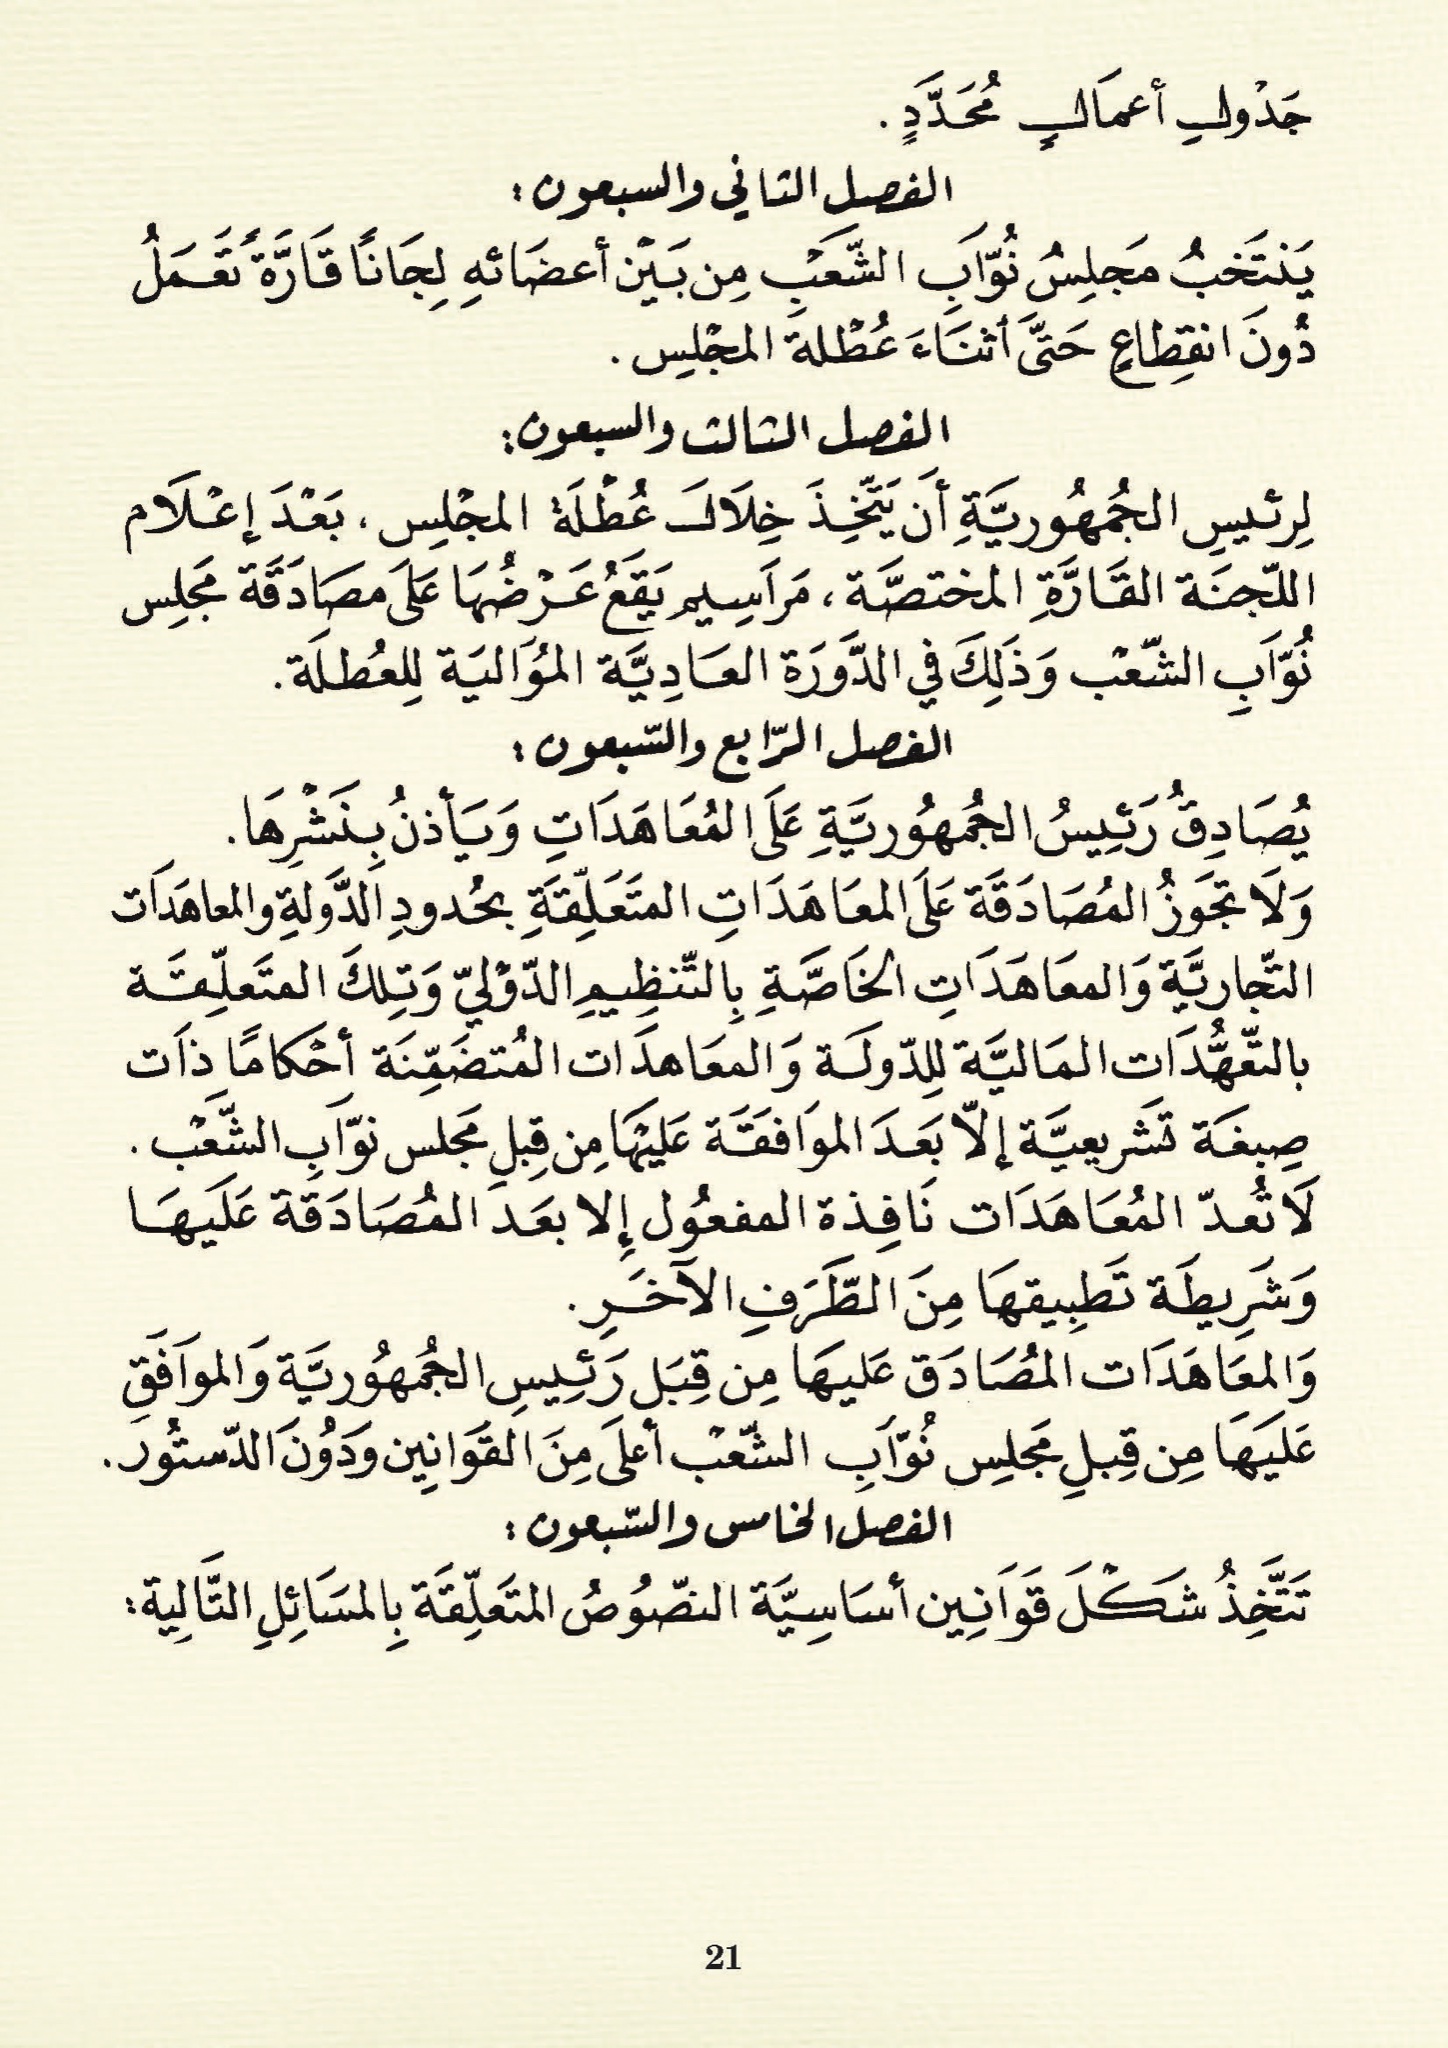 جَدْولِ أعمَالٍ مُحَدَّدٍ.
الفصل الثاني والسبعون:
يَنتَخبُ مَجلِسُ نُوّابِ الشّعَبِ مِن بَيْن أعضَائهِ لِجَانًا قَارَّةً تَعَمَلُ
دُونَ انقِطاعٍ حَتَّى أثنَاءَ عُطْلة المجْلِس.
الفصل الثالث والسبعون:
لِرئيسِ الجُمهُوريَّةِ أَن يَتّخِذَ خِلَالَ عُطْلَة المجْلِس، بَعْدَ إعْلَام
اللّجنَة القَارَّةِ المختصَّة، مَرَاسِيم يَقَعُ عَرْضُهَا عَلَى مصَادَقَة مَجلِس
نُوّابِ الشّعْب وَذَلِكَ في الدَّورَة العَادِيَّة المُوَاليَة لِلعُطلَة.
الفصل الرّابع والسّبعون:
يُصَادِقُ رَئِيسُ الجُمهُوريَّةِ عَلَى المُعَاهَدَاتِ وَيَأذنُ بِنَشْرِهَا.
وَلَا تجَوزُ المُصَادَقَة عَلَى المعَاهَدَاتِ المتَعَلِّقَةِ بحُدودِ الدَّولةِ والمعاهَدَات
التّجاريَّة وَالمعَاهَدَاتِ الخَاصَّةِ بِالتّنظِيمِ الدّوْليّ وَتِلكَ المتَعلّقَة
بالتّعَهُّدَات المَاليَّة لِلدّولَة وَالمعَاهدَات المُتضَمِّنَة أحْكامًا ذَات
صِبغَة تشَريعيَّة إلاّ بَعَدَ الموَافقَة عَليْهَا مِن قِبلِ مَجلس نوّابِ الشَّعْب.
لَا تُعدّ المُعَاهَدَات نَافِذة المفعُول إلا بعَد المُصَادَقَة عَلَيهَا
وَشَرِيطَة تَطبِيقهَا مِنَ الطّرَفِ الآخَرِ.
وَالمعَاهَدَات المُصَادَق عَليهَا مِن قِبَل رَئِيسِ الجُمهُوريَّة وَالموافَقِ
عَليَهَا مِن قِبلِ مَجلِس نُوّابِ الشّعْب أعلَى مِنَ القَوَانِين وَدُونَ الدّستُور.
الفصل الخامس والسّبعون:
تَتَّخِذُ شَكْلَ قَوَانِين أسَاسِيَّة النصّوُصُ المتَعلِّقَة بِالمسَائِلِ التَّالِية:
21